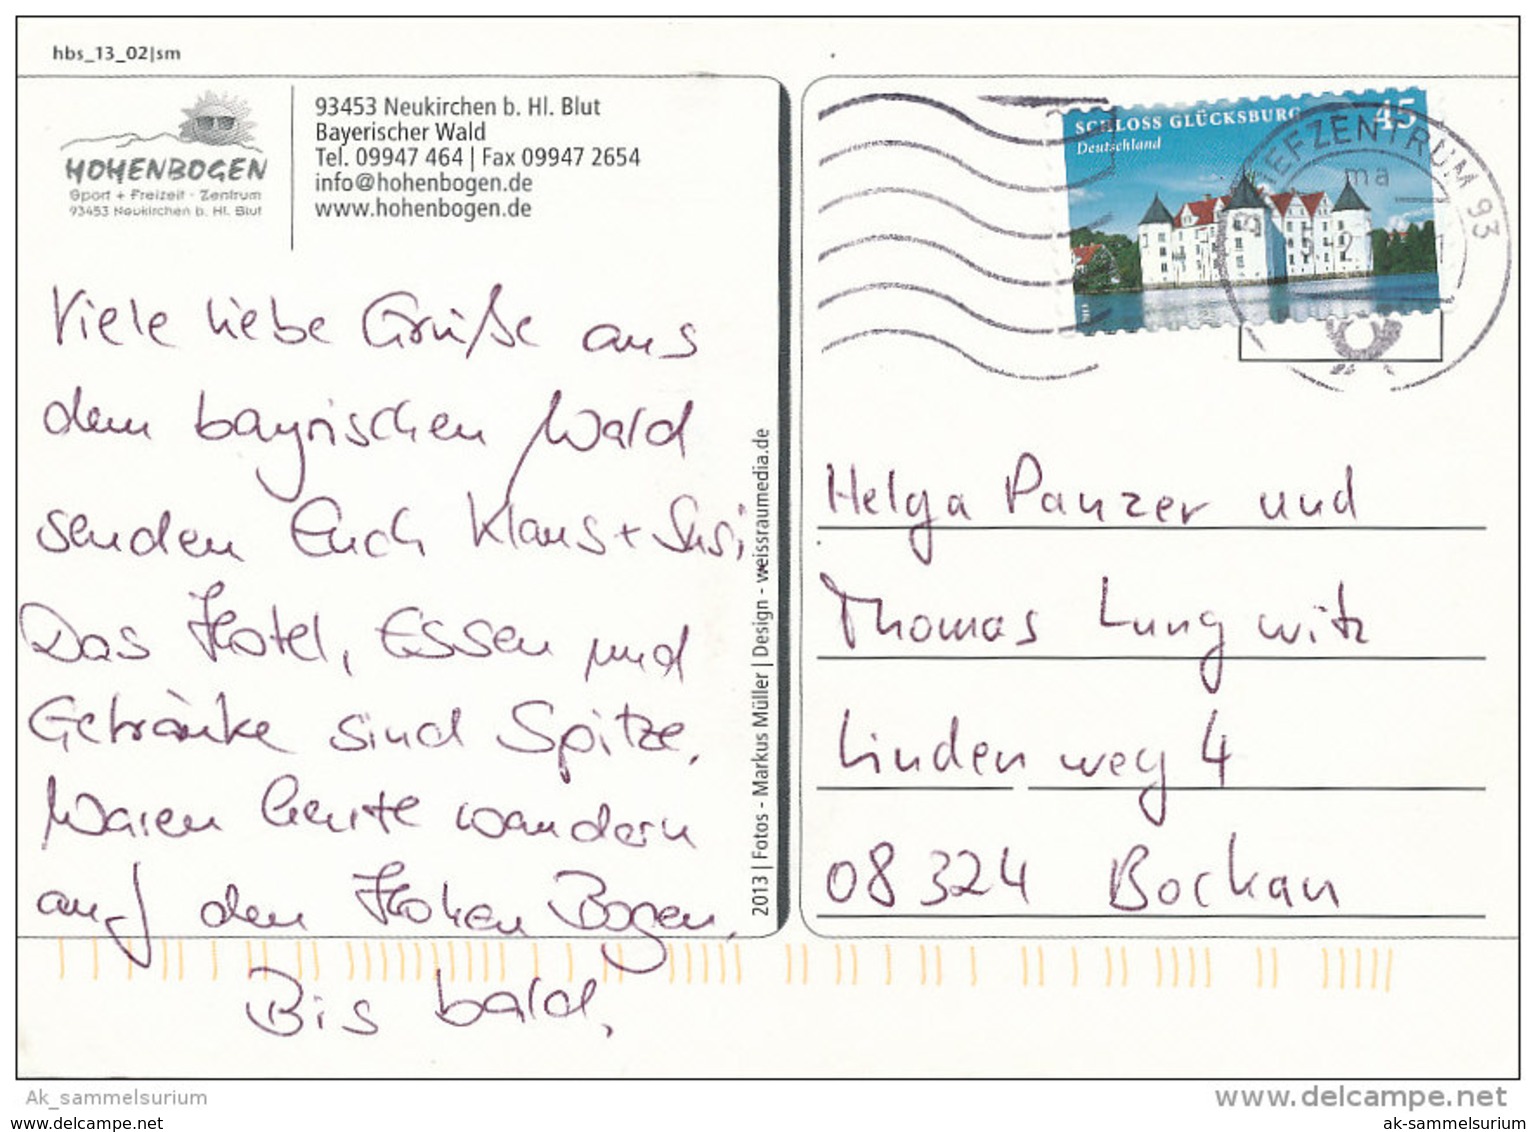 hbs_13_02|sm
HOHENBOGEN
Sport + Freizeit - Zentrum
93453 Neukirchen b. Hl. Blut
93453 Neukirchen b. Hl. Blut
Bayerischer Wald
Tel. 09947 464 | Fax 09947 2654
info@hohenbogen.de
www.hohenbogen.de
Viele liebe Grüße aus
dem bayrischen Wald
senden Euch Klaus + Susi.
Das Hotel, Essen und
Getränke sind Spitze.
Waren heute wandern
auf den Hohen Bogen.
Bis bald,
2013 | Fotos - Markus Müller | Design - weissraumedia.de
SCHLOSS GLÜCKSBURG 45
Deutschland
BRIEFZENTRUM 93
ma
Helga Panzer und
Thomas Lungwitz
Lindenweg 4
08324 Bockau
Ak_sammelsurium
www.delcampe.net
www.bildpostkarten.com
ak-sammelsurium